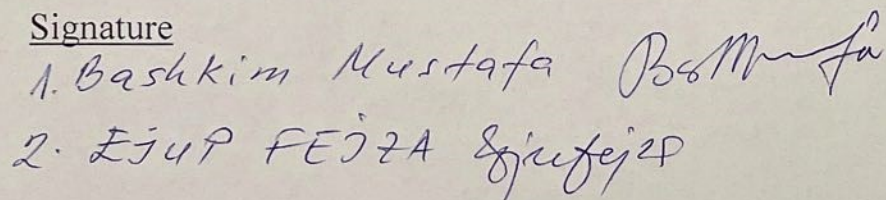 Signature
1. Bashkim Mustafa
2. EJUP FEJZA